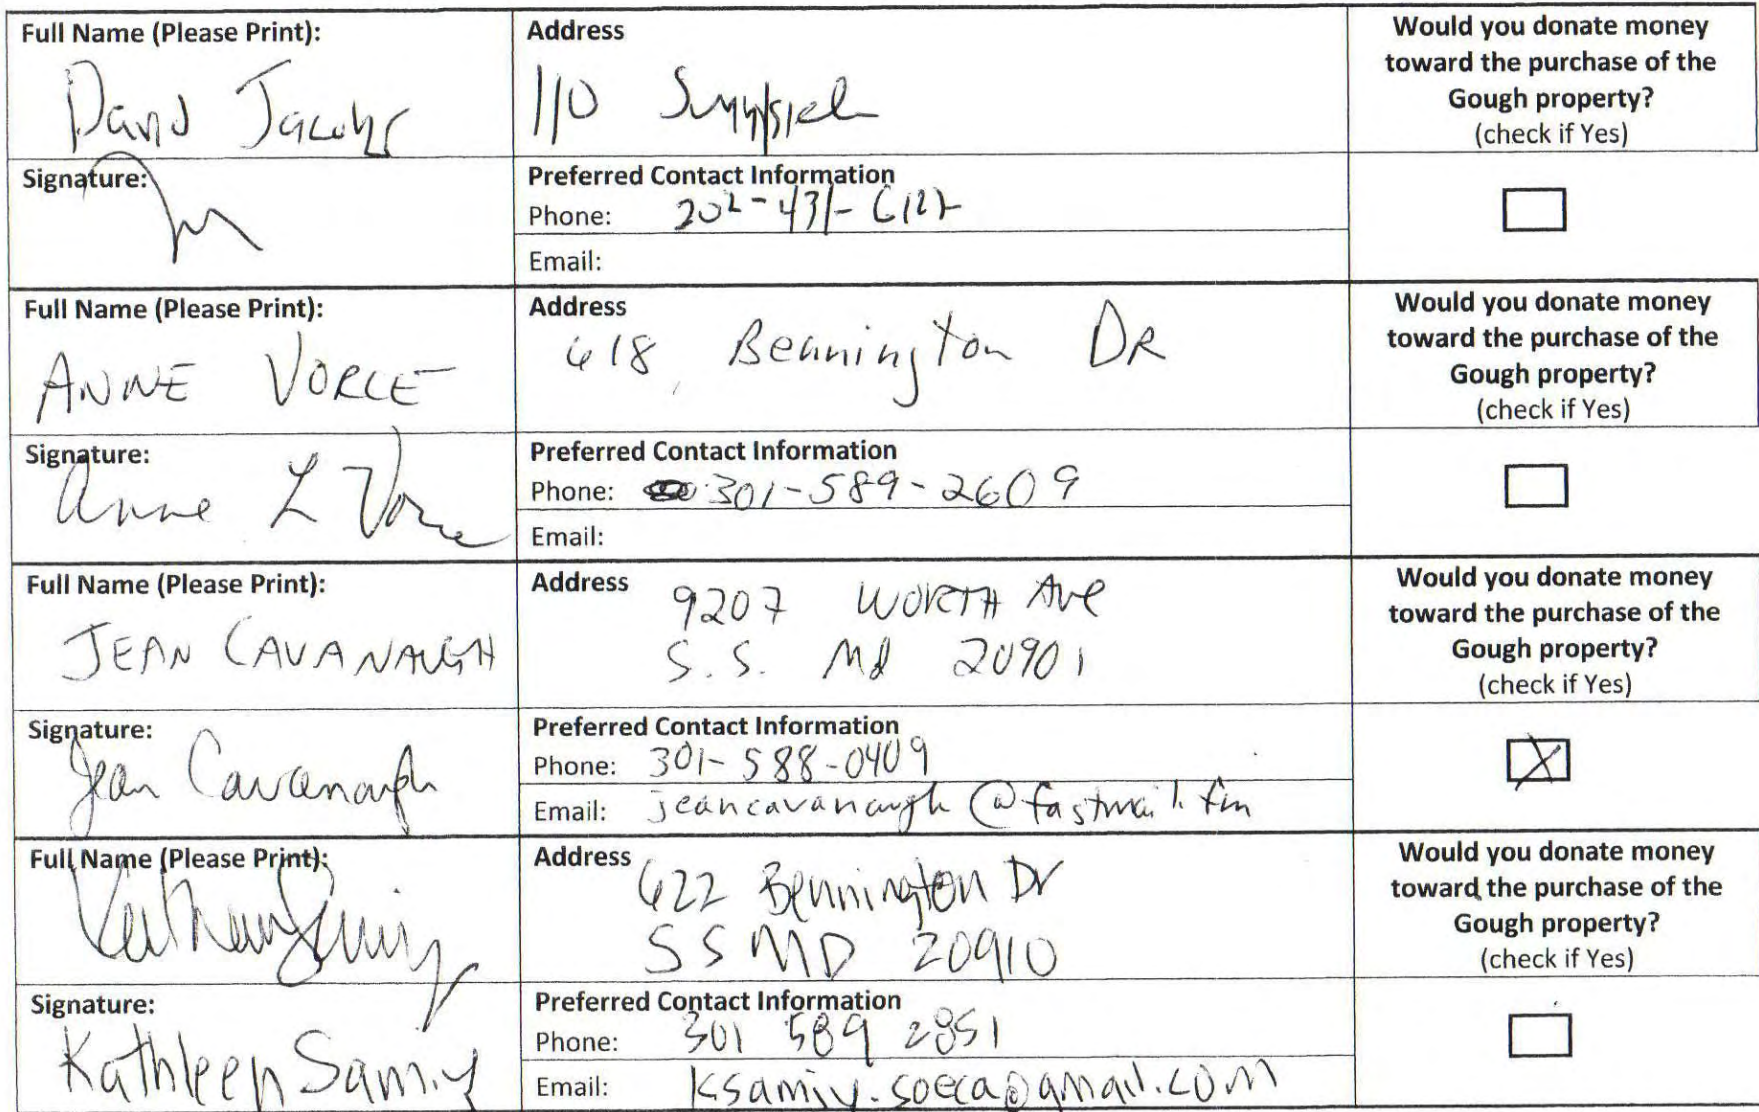 Full Name (Please Print):
David Jacobs
Address
110
Would you donate money
toward the purchase of the
Gough property?
(check if Yes)
Signature:
Preferred Contact Information
Phone: 202-431-6122
Email:
Full Name (Please Print):
ANNE VORCE
Address
618 Bennington DR
Would you donate money
toward the purchase of the
Gough property?
(check if Yes)
Signature:
Anne L Vorce
Preferred Contact Information
Phone: 301-589-2609
Email:
Full Name (Please Print):
JEAN CAVANAUGH
Address
9207 WORTH Ave
S.S. Md 20901
Would you donate money
toward the purchase of the
Gough property?
(check if Yes)
Signature:
Jean Cavanaugh
Preferred Contact Information
Phone: 301-588-0409
Email: jeancavanaugh@fastmail.fm
Full Name (Please Print):
Address
622 Bennington Dr
SS MD 20910
Would you donate money
toward the purchase of the
Gough property?
(check if Yes)
Signature:
Kathleen Samiy
Preferred Contact Information
Phone: 301 589 2851
Email: ksamiy.soeca@gmail.com